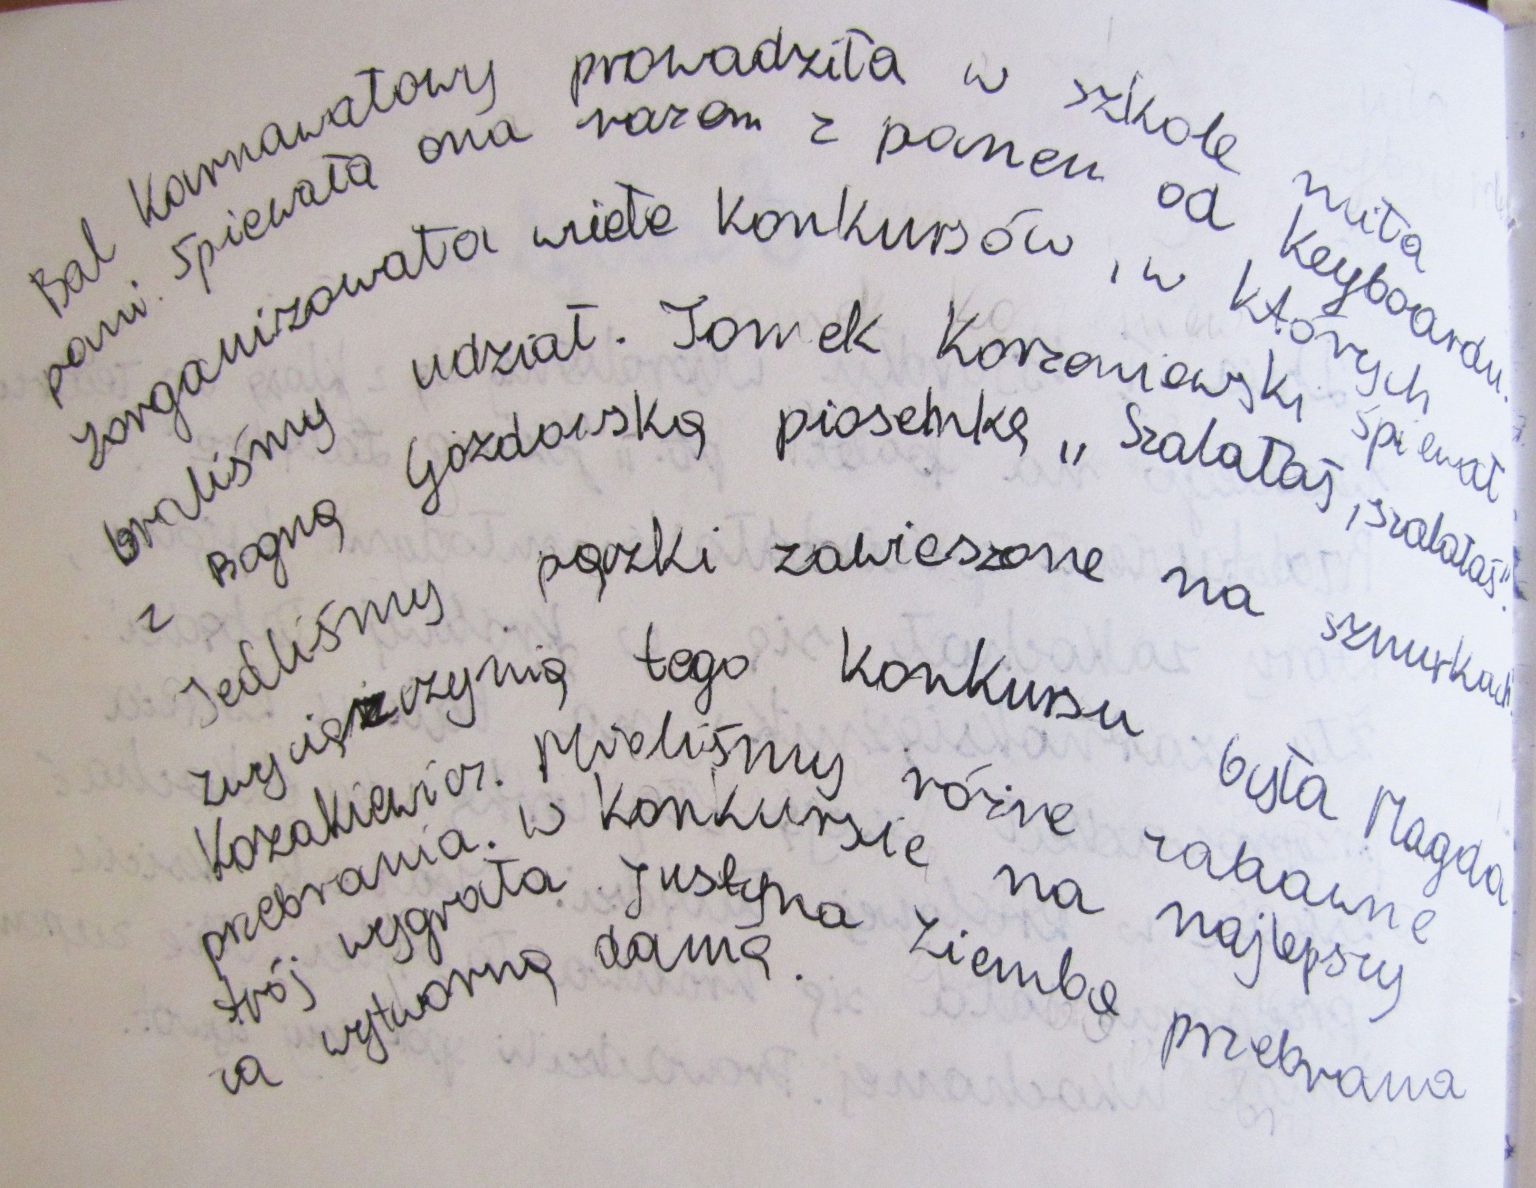 Bal karnawałowy prowadziła w szkole miła
pani. Śpiewała ona razem z panem od keyboardu.
Zorganizowała wiele konkursów, w których
braliśmy udział. Tomek Korzeniewski śpiewał
z Bogną Gozdowską piosenkę „Szalałaś, szalałaś".
Jedliśmy pączki zawieszone na sznurkach.
Zwyciężczynią tego konkursu była Magda
Kozakiewicz. Mieliśmy różne zabawne
przebrania. W konkursie na najlepszy
strój wygrała Justyna Ziemba przebrana
za wytworną damę.